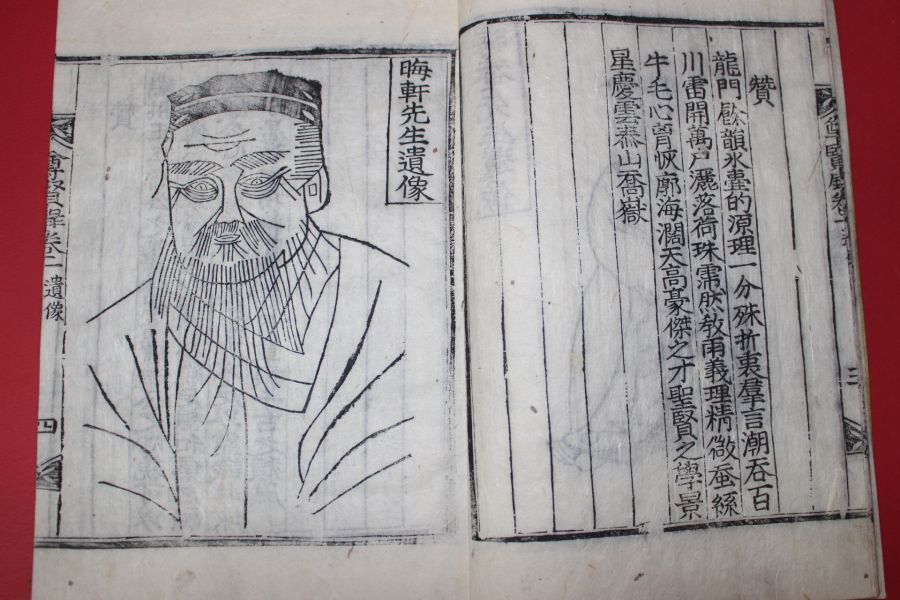 贊
龍門餘韻氷壺的源理一分殊折衷羣言潮吞百
川雷開萬戶灑落荷珠霈然敎雨義理精微蚕絲
牛毛心胷恢廓海濶天高豪傑之才聖賢之學景
星慶雲泰山喬嶽
三
晦軒先生遺像
遺像
四